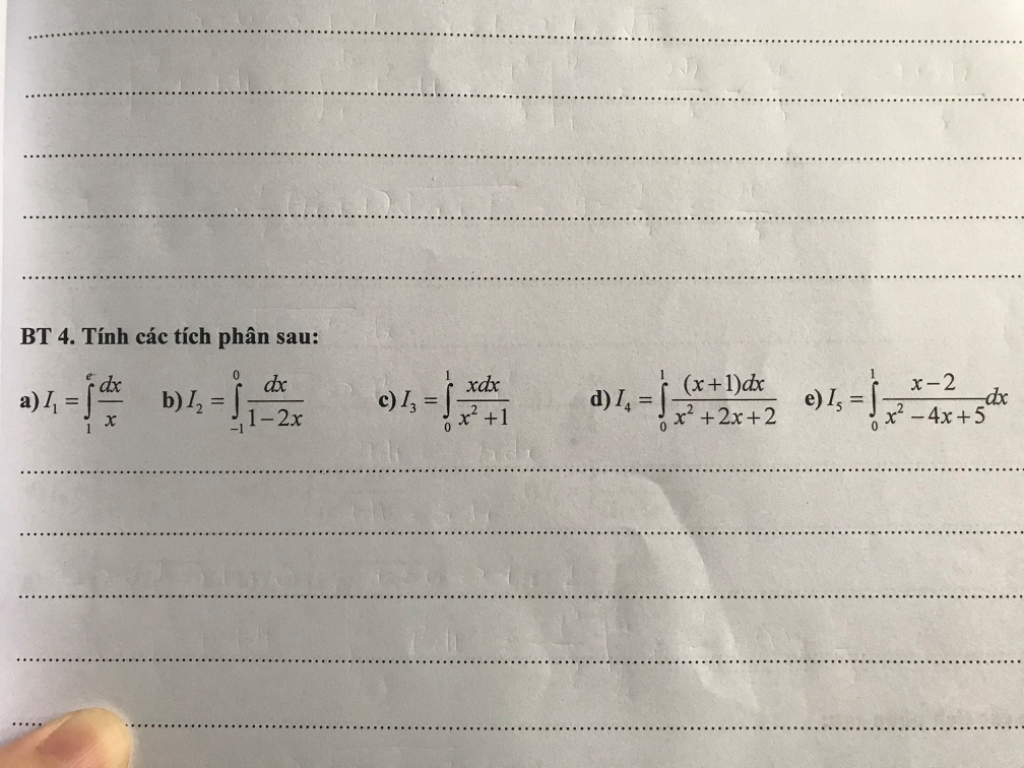 BT 4. Tính các tích phân sau:
a) I₁ = ∫₁ᵉ dx/x b) I₂ = ∫₋₁⁰ dx/(1−2x) c) I₃ = ∫₀¹ xdx/(x²+1) d) I₄ = ∫₀¹ (x+1)dx/(x²+2x+2) e) I₅ = ∫₀¹ (x−2)/(x²−4x+5) dx